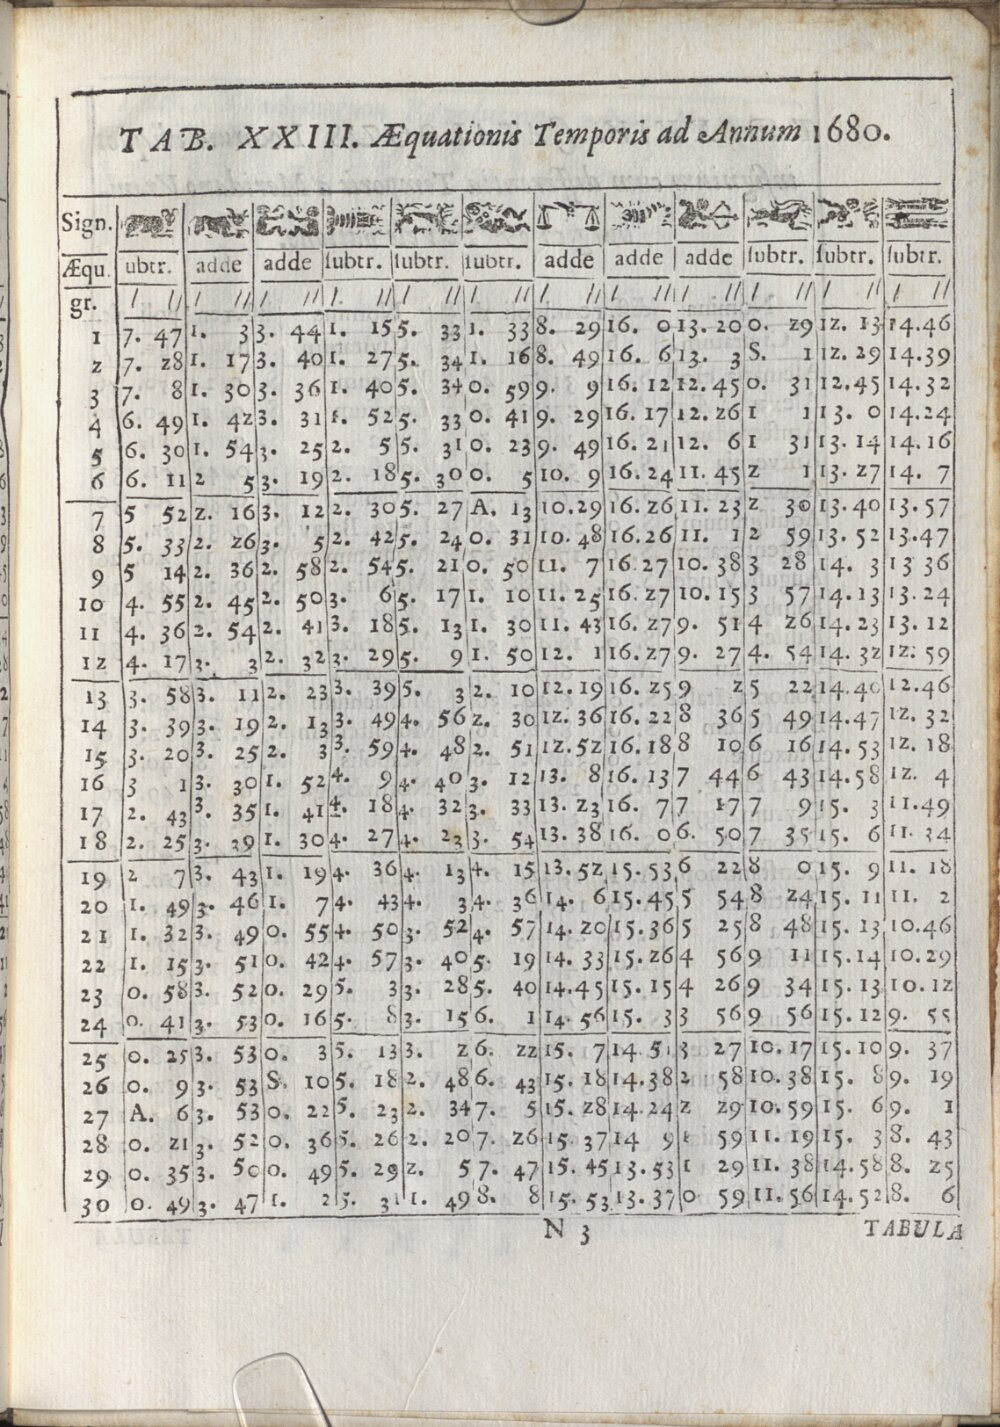 TAB. XXIII. Æquationis Temporis ad Annum 1680.
Sign.
Æqu. ubtr. adde adde ſubtr. ſubtr. ſubtr. adde adde adde ſubtr. ſubtr. ſubtr.
gr. / // / // / // / // / // / // / // / // / // / // / // / //
1 7. 47 1. 3 3. 44 1. 15 5. 33 1. 33 8. 29 16. 0 13. 20 0. z9 1z. 13 14.46
z 7. z8 1. 17 3. 40 1. 27 5. 34 1. 16 8. 49 16. 6 13. 3 S. 1 1z. 29 14.39
3 7. 8 1. 30 3. 36 1. 40 5. 34 0. 59 9. 9 16. 12 12. 45 0. 31 12.45 14.32
4 6. 49 1. 4z 3. 31 1. 52 5. 33 0. 41 9. 29 16. 17 12. z6 1 1 13. 0 14.24
5 6. 30 1. 54 3. 25 2. 5 5. 31 0. 23 9. 49 16. 21 12. 6 1 31 13. 14 14.16
6 6. 11 2 5 3. 19 2. 18 5. 30 0. 5 10. 9 16. 24 11. 45 z 1 13. z7 14. 7
7 5 52 z. 16 3. 12 2. 30 5. 27 A. 13 10.29 16. z6 11. 23 z 30 13.40 13.57
8 5. 33 2. z6 3. 5 2. 42 5. 24 0. 31 10. 48 16.26 11. 1 2 59 13. 52 13.47
9 5 14 2. 36 2. 58 2. 54 5. 21 0. 50 11. 7 16 27 10. 38 3 28 14. 3 13 36
10 4. 55 2. 45 2. 50 3. 6 5. 17 1. 10 11. 25 16. z7 10. 15 3 57 14.13 13.24
11 4. 36 2. 54 2. 41 3. 18 5. 13 1. 30 11. 43 16. z7 9. 51 4 z6 14.23 13.12
1z 4. 17 3. 3 2. 32 3. 29 5. 9 1. 50 12. 1 16. z7 9. 27 4. 54 14. 3z 1z: 59
13 3. 58 3. 11 2. 23 3. 39 5. 3 2. 10 12.19 16. z5 9 z 5 22 14.40 12.46
14 3. 39 3. 19 2. 13 3. 49 4. 56 z. 30 1z. 36 16. 22 8 36 5 49 14.47 1z. 32
15 3. 20 3. 25 2. 3 3. 59 4. 48 2. 51 1z.5z 16. 18 8 10 6 16 14.53 1z. 18
16 3 1 3. 30 1. 52 4. 9 4. 40 3. 12 13. 8 16. 13 7 44 6 43 14.58 1z. 4
17 2. 43 3. 35 1. 41 4. 18 4. 32 3. 33 13. z3 16. 7 7 17 7 9 15. 3 11.49
18 2. 25 3. 39 1. 30 4. 27 4. 23 3. 54 13. 38 16. 0 6. 50 7 35 15. 6 11. 34
19 2 7 3. 43 1. 19 4. 36 4. 13 4. 15 13.5z 15.53 6 22 8 0 15. 9 11. 18
20 1. 49 3. 46 1. 7 4. 43 4. 3 4. 36 14. 6 15.45 5 54 8 z4 15. 11 11. 2
21 1. 32 3. 49 0. 55 4. 50 3. 52 4. 57 14. z0 15.36 5 25 8 48 15. 13 10.46
22 1. 15 3. 51 0. 42 4. 57 3. 40 5. 19 14. 33 15.z6 4 56 9 11 15.14 10.29
23 0. 58 3. 52 0. 29 5. 3 3. 28 5. 40 14.45 15.15 4 26 9 34 15. 13 10.1z
24 0. 41 3. 53 0. 16 5. 8 3. 15 6. 1 14. 56 15. 3 3 56 9 56 15. 12 9. 55
25 0. 25 3. 53 0. 3 5. 13 3. z 6. zz 15. 7 14. 51 3 27 10.17 15.10 9. 37
26 0. 9 3. 53 S. 10 5. 18 2. 48 6. 43 15. 18 14.38 2 58 10.38 15. 8 9. 19
27 A. 6 3. 53 0. 22 5. 23 2. 34 7. 5 15. z8 14.24 z z9 10.59 15. 6 9. 1
28 0. z1 3. 52 0. 36 5. 26 2. 20 7. z6 15 37 14 9 1 59 11. 19 15. 3 8. 43
29 0. 35 3. 50 0. 49 5. 29 z. 5 7. 47 15. 45 13.53 1 29 11. 38 14.58 8. z5
30 0. 49 3. 47 1. 2 5. 31 1. 49 8. 8 15. 53 13.37 0 59 11. 56 14.52 8. 6
N 3 TABULA